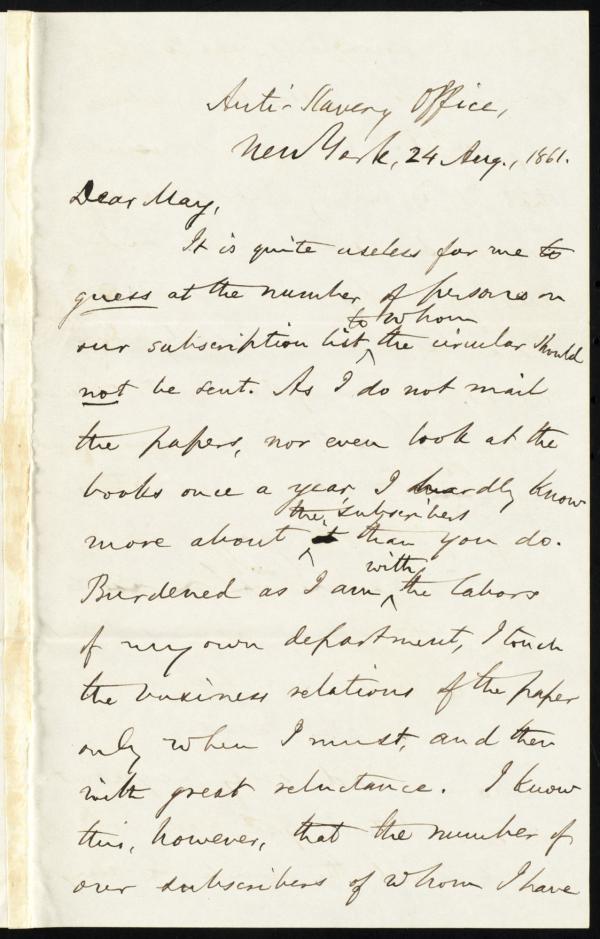 Anti-Slavery Office,
New York, 24 Aug., 1861.
Dear May,
It is quite useless for me to
guess at the number of persons on
to whom
our subscription list the circular should
not be sent. As I do not mail
the papers, nor even look at the
books once a year I hardly know
the subscribers
more about than you do.
with
Burdened as I am the labors
of my own department, I touch
the business relations of the paper
only when I must, and then
with great reluctance. I know
this, however, that the number of
our subscribers of whom I have